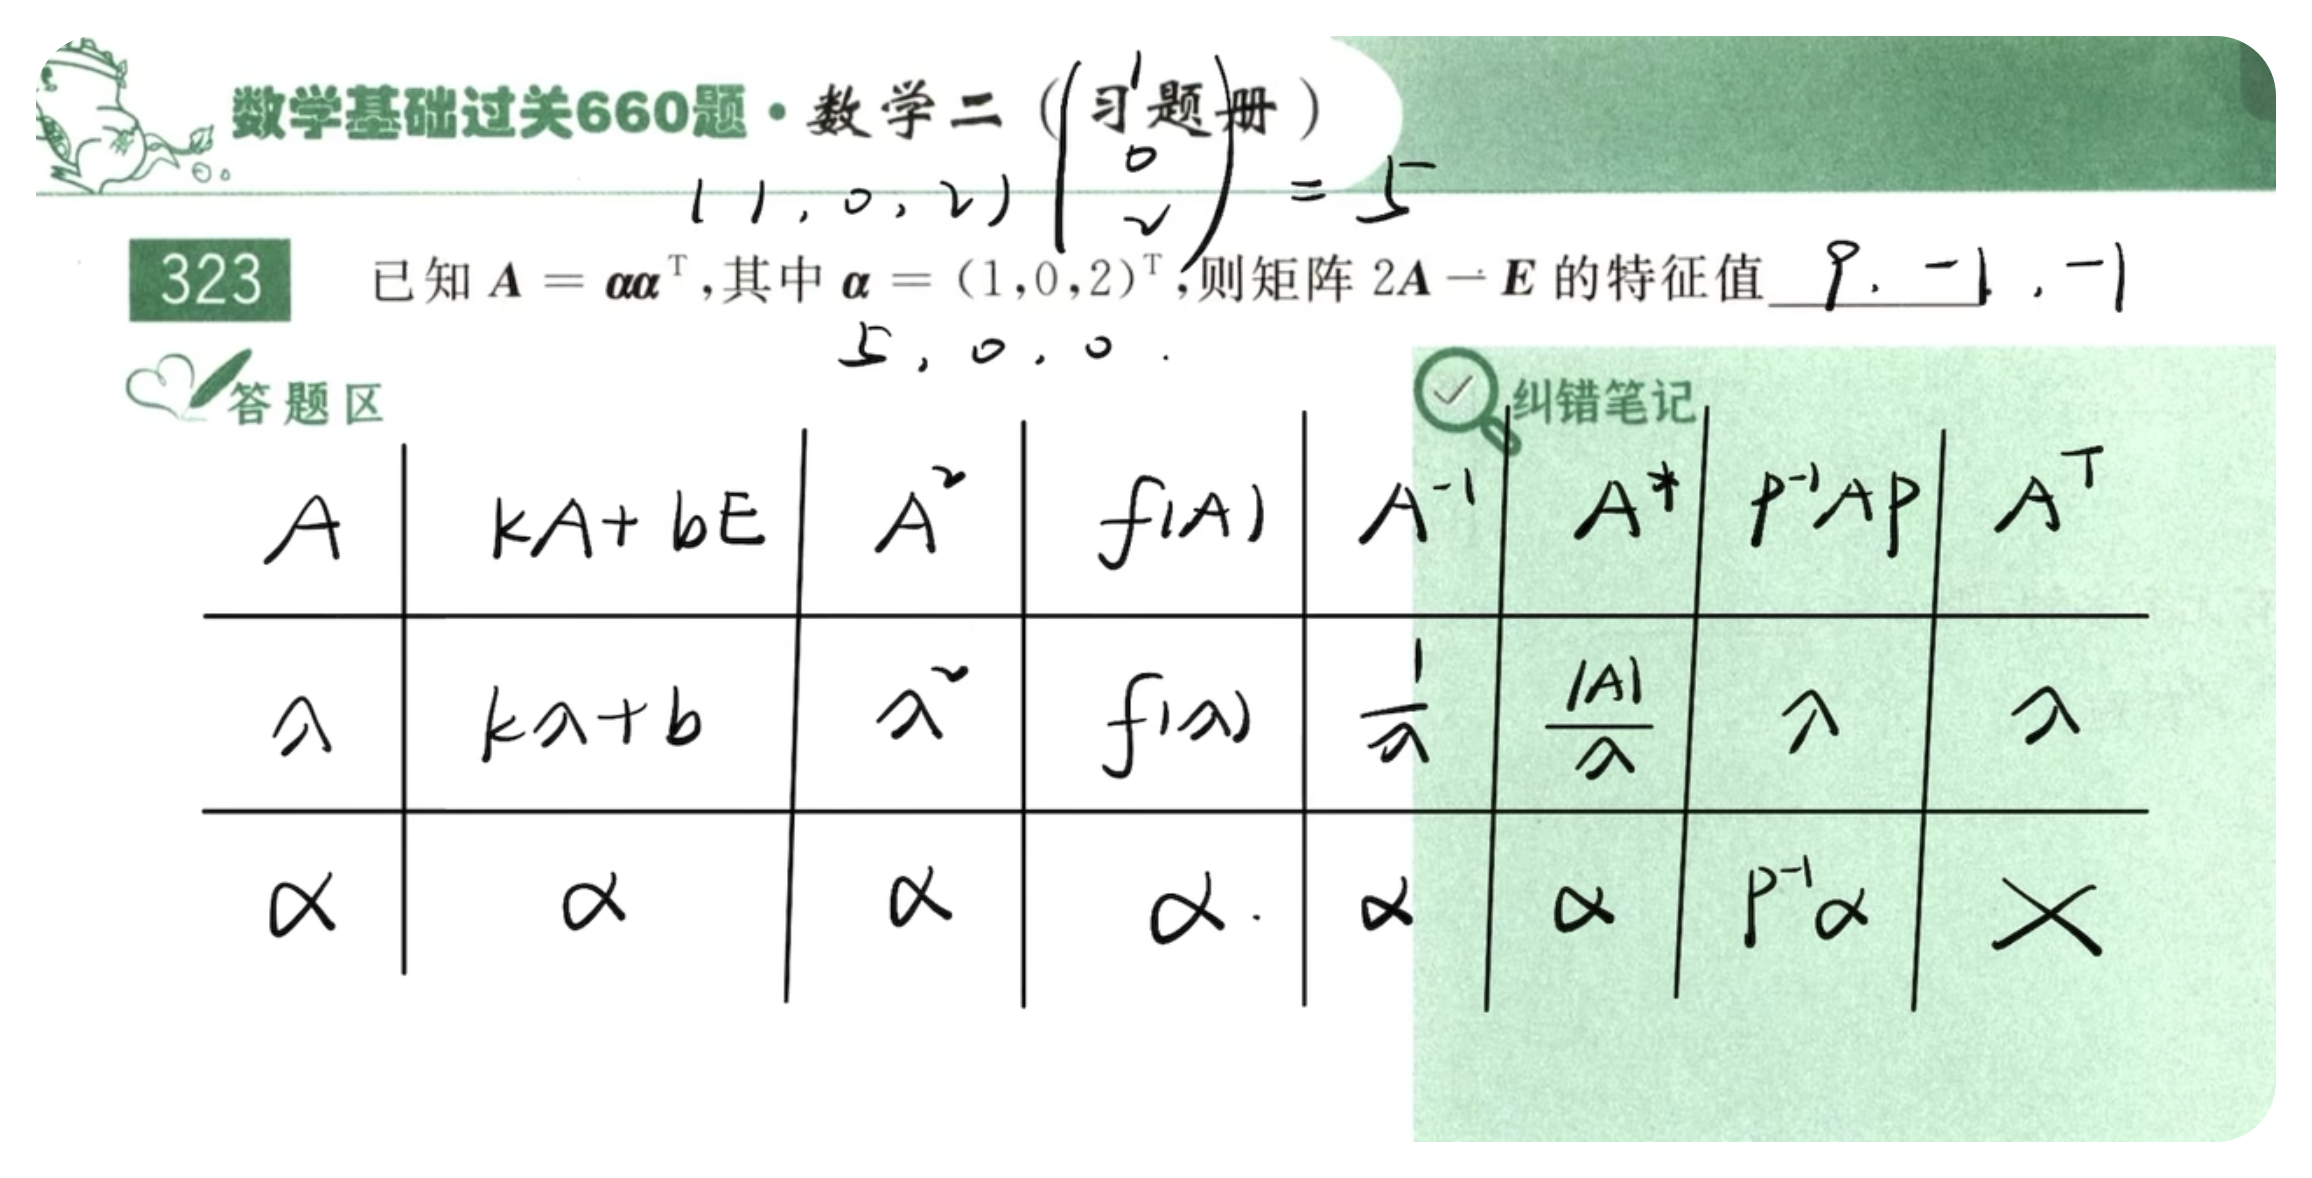 数学基础过关660题·数学二(习题册)
(1,0,2)(1 0 2) = 5
323 已知 A = αα^T,其中 α = (1,0,2)^T,则矩阵 2A − E 的特征值 9. -1. -1
5, 0, 0.
答题区 纠错笔记
A kA+bE A² f(A) A⁻¹ A* P⁻¹AP A^T
λ kλ+b λ² f(λ) 1/λ |A|/λ λ λ
α α α α. α α P⁻¹α ×